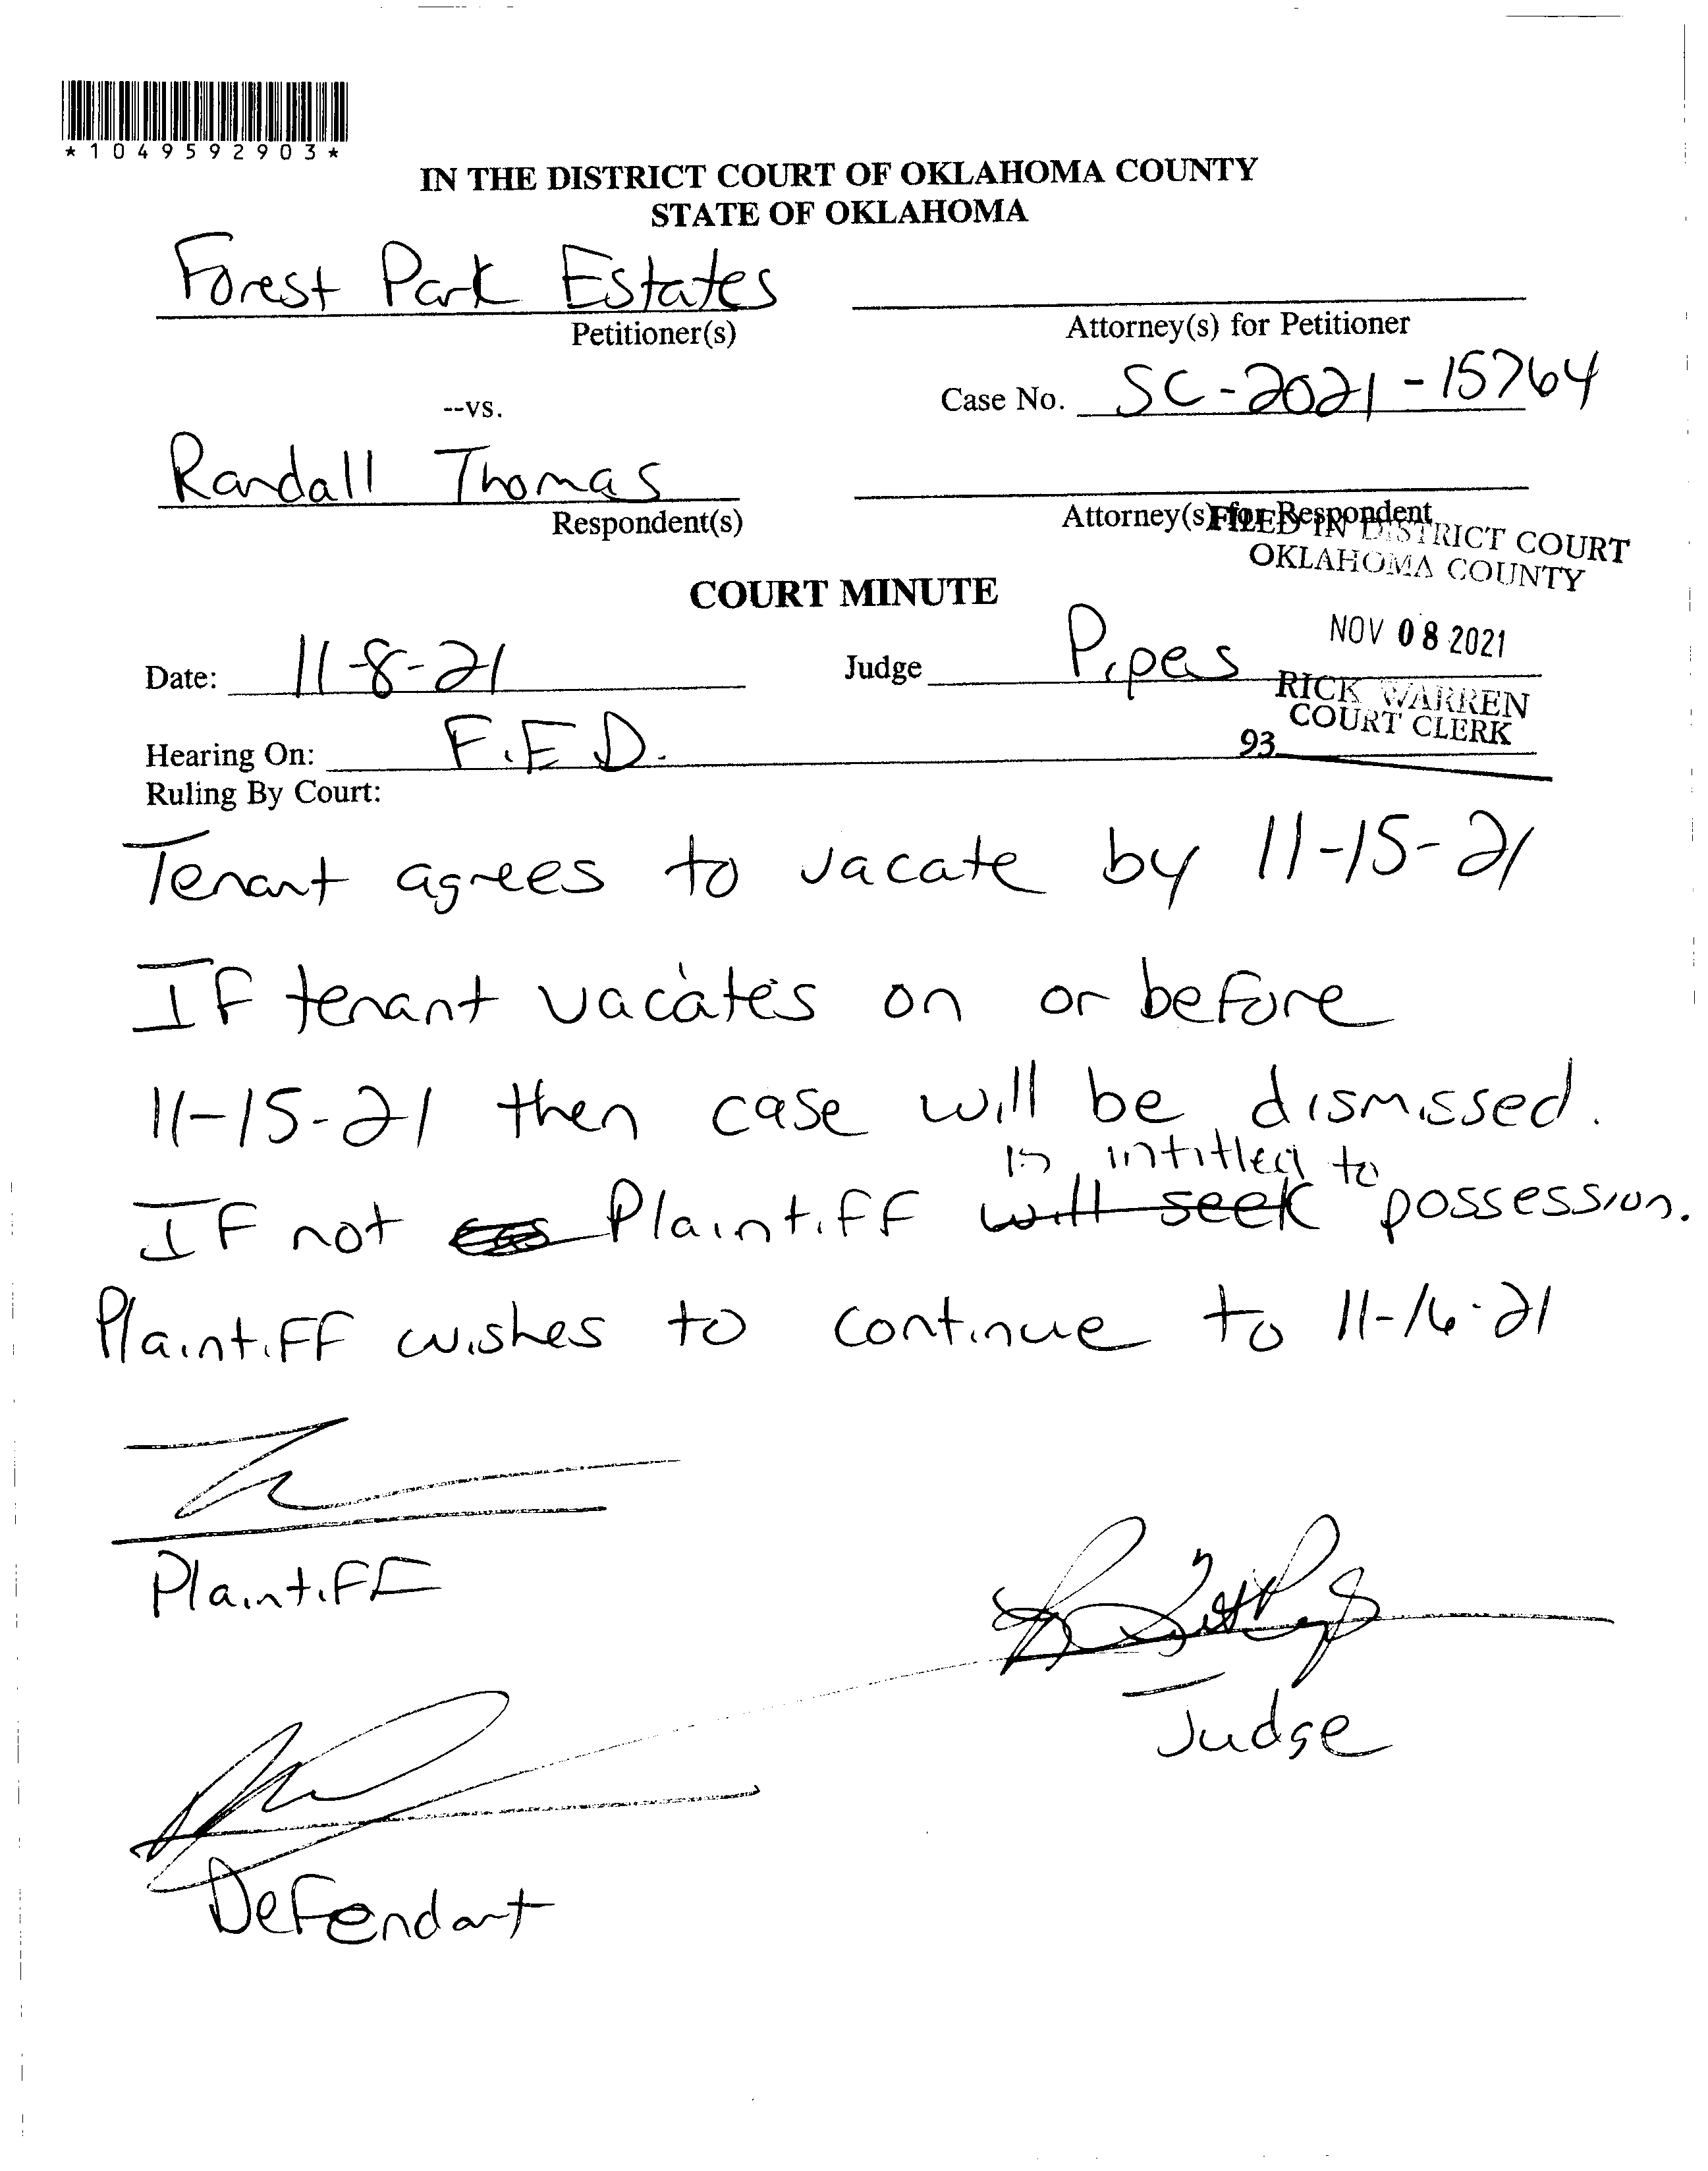 *1049592903*
IN THE DISTRICT COURT OF OKLAHOMA COUNTY
STATE OF OKLAHOMA
Forest Park Estates
Petitioner(s)
Attorney(s) for Petitioner
--vs.
Case No. SC-2021-15764
Randall Thomas
Respondent(s)
Attorney(s) for Respondent
FILED IN DISTRICT COURT
OKLAHOMA COUNTY
COURT MINUTE
NOV 08 2021
Date: 11-8-21
Judge Pipes
RICK WARREN
COURT CLERK
93
Hearing On: F.E.D.
Ruling By Court:
Tenant agrees to vacate by 11-15-21
If tenant vacates on or before
11-15-21 then case will be dismissed.
is intitled to
If not Plaintiff will seek possession.
Plaintiff wishes to continue to 11-16-21
Plaintiff
Judge
Defendant